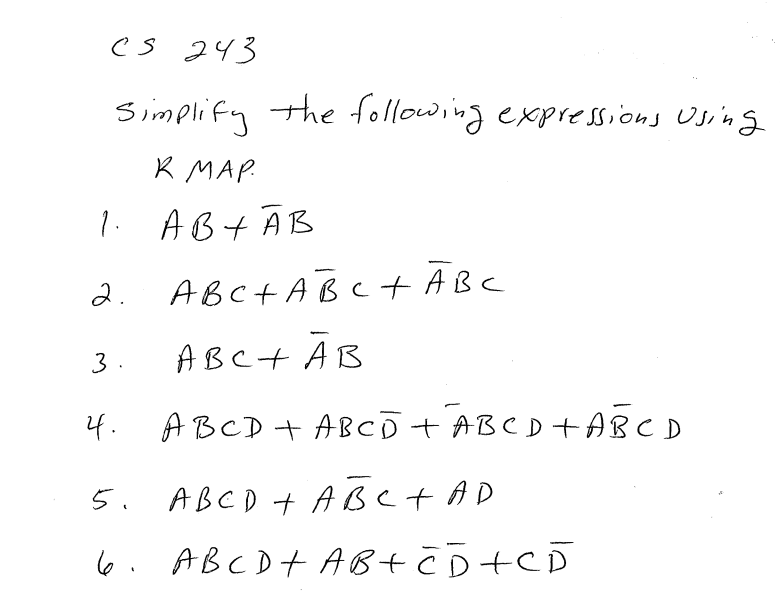 CS 243
Simplify the following expressions using
K MAP.
1. AB + A̅B
2. ABC + AB̅C + A̅BC
3. ABC + A̅B
4. ABCD + ABCD̅ + A̅BCD + AB̅CD
5. ABCD + AB̅C + AD
6. ABCD + AB + C̅D̅ + CD̅